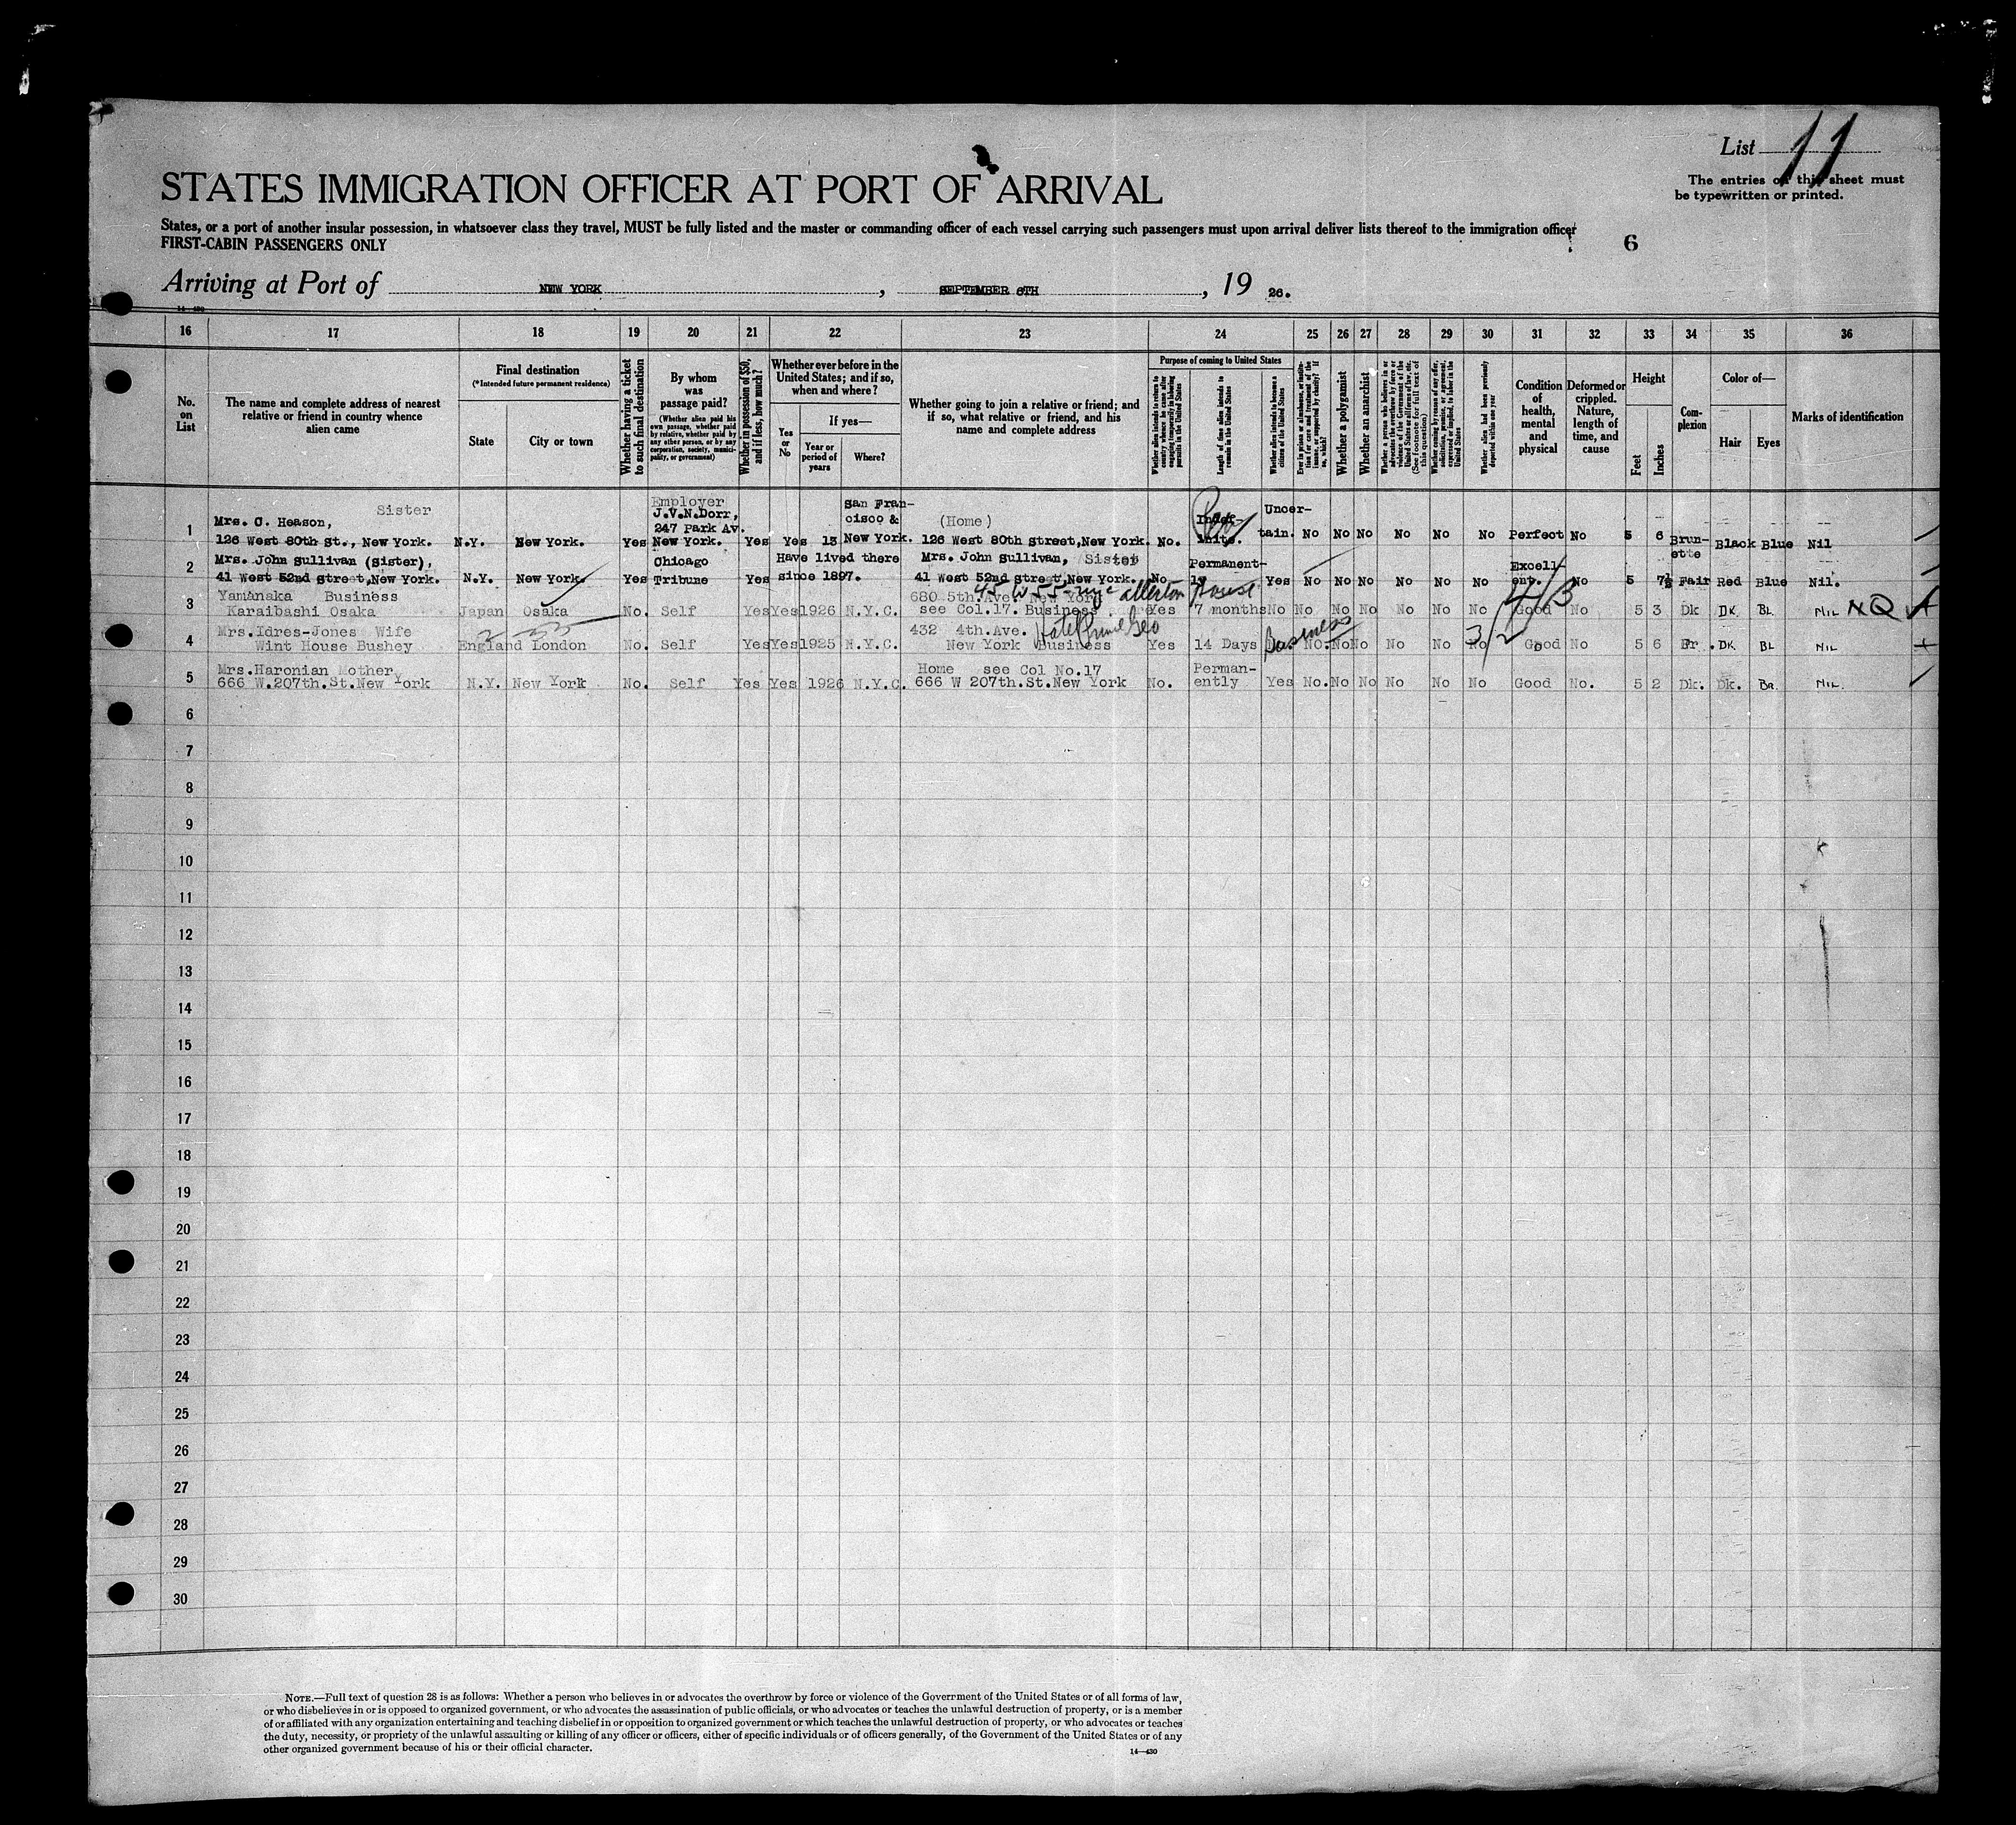 List 11
The entries on this sheet must
be typewritten or printed.
STATES IMMIGRATION OFFICER AT PORT OF ARRIVAL
States, or a port of another insular possession, in whatsoever class they travel, MUST be fully listed and the master or commanding officer of each vessel carrying such passengers must upon arrival deliver lists thereof to the immigration officer
FIRST-CABIN PASSENGERS ONLY
6
Arriving at Port of NEW YORK, SEPTEMBER 6TH, 19 26.
14-430
16 17 18 19 20 21 22 23 24 25 26 27 28 29 30 31 32 33 34 35 36
No. on List
The name and complete address of nearest relative or friend in country whence alien came
Final destination
(*Intended future permanent residence)
State
City or town
Whether having a ticket to such final destination
By whom was passage paid?
(Whether alien paid his own passage, whether paid by relative, whether paid by any other person, or by any corporation, society, municipality, or government)
Whether in possession of $50, and if less, how much?
Whether ever before in the United States; and if so, when and where?
Yes or No
If yes—
Year or period of years
Where?
Whether going to join a relative or friend; and if so, what relative or friend, and his name and complete address
Purpose of coming to United States
Whether alien intends to return to country whence he came after engaging temporarily in laboring pursuits in the United States
Length of time alien intends to remain in the United States
Whether alien intends to become a citizen of the United States
Ever in prison or almshouse, or institution for care and treatment of the insane, or supported by charity? If so, which?
Whether a polygamist
Whether an anarchist
Whether a person who believes in or advocates the overthrow by force or violence of the Government of the United States or all forms of law, etc. (See footnote for full text of this question)
Whether coming by reason of any offer, solicitation, promise, or agreement, expressed or implied, to labor in the United States
Whether alien had been previously deported within one year
Condition of health, mental and physical
Deformed or crippled. Nature, length of time, and cause
Height
Feet
Inches
Complexion
Color of—
Hair
Eyes
Marks of identification
1 Mrs. C. Heason, Sister
126 West 80th St., New York. N.Y. New York. Yes Employer J.V.N.Dorr, 247 Park Av. New York. Yes Yes 13 San Francisco & New York. (Home) 126 West 80th Street,New York. No. Indefinite. Uncertain. No No No No No No Perfect No 5 6 Brunette Black Blue Nil
2 Mrs. John Sullivan (Sister),
41 West 52nd Street,New York. N.Y. New York. Yes Chicago Tribune Yes Have lived there since 1897. Mrs. John Sullivan, Sister 41 West 52nd Street,New York. No Permanently Yes No No No No No No Excellent. No 5 7½ Fair Red Blue Nil.
45 W 55 nyc allerton House
3 Yamanaka Business
Karaibashi Osaka Japan Osaka No. Self Yes Yes 1926 N.Y.C. 680 5th.Ave. New York see Col.17. Business Yes 7 months No No No No No No No Good No 5 3 Dk DK BL NIL NQ
4/3
4 Mrs.Idres-Jones Wife
Wint House Bushey England London No. Self Yes Yes 1925 N.Y.C. 432 4th.Ave. New York Business Yes 14 Days Business No. No No No No No Good No 5 6 Fr. DK BL NIL
3/2
5 Mrs.Haronian Mother
666 W.207th.St.New York N.Y. New York No. Self Yes Yes 1926 N.Y.C. Home see Col No.17 666 W 207th.St.New York No. Permanently Yes No. No No No No No Good No. 5 2 Dk. Dk. Br. NIL.
6
7
8
9
10
11
12
13
14
15
16
17
18
19
20
21
22
23
24
25
26
27
28
29
30
NOTE.—Full text of question 28 is as follows: Whether a person who believes in or advocates the overthrow by force or violence of the Government of the United States or of all forms of law,
or who disbelieves in or is opposed to organized government, or who advocates the assassination of public officials, or who advocates or teaches the unlawful destruction of property, or is a member
of or affiliated with any organization entertaining and teaching disbelief in or opposition to organized government or which teaches the unlawful destruction of property, or who advocates or teaches
the duty, necessity, or propriety of the unlawful assaulting or killing of any officer or officers, either of specific individuals or of officers generally, of the Government of the United States or of any
other organized government because of his or their official character.
14—430